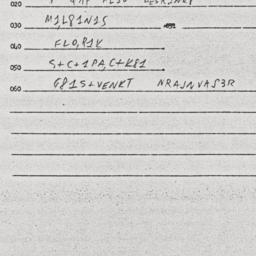 020
030 M1L81N1S
040 FLO,81K
050 S+C+1PA,C+K81
060 G81S+VENKT NRASNVAS3R